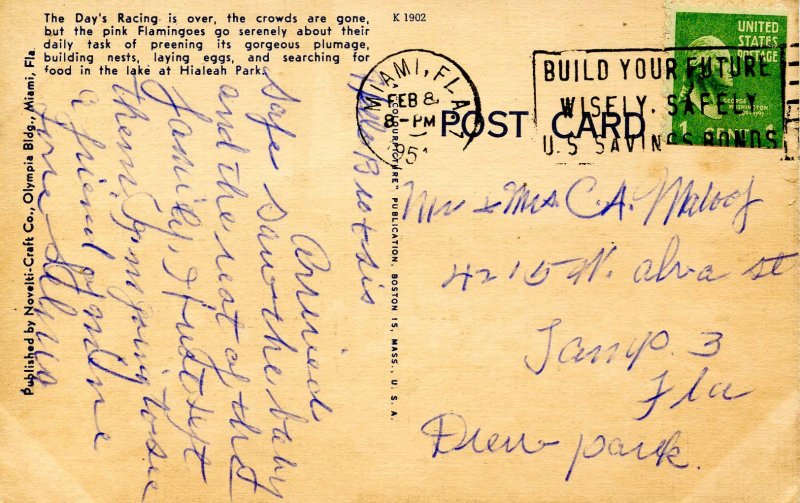 The Day's Racing is over, the crowds are gone,
but the pink Flamingoes go serenely about their
daily task of preening its gorgeous plumage,
building nests, laying eggs, and searching for
food in the lake at Hialeah Park.
K 1902
Published by Novelti-Craft Co., Olympia Bldg., Miami, Fla.
Hello Bro & sis
Arrived
safe saw the baby
and the rest of that
family. I just left
them. I'm going to see
a friend of mine
A "COLOURPICTURE" PUBLICATION, BOSTON 15, MASS., U. S. A.
MIAMI, FLA.
FEB 8
8 - PM
195
BUILD YOUR FUTURE
WISELY, SAFELY
U.S SAVINGS BONDS
UNITED
STATES
POSTAGE
GEORGE
WASHINGTON
POST CARD
Mr & Mrs. C.A. Maloof
4215 N. alva st
Tamp. 3
Fla
Drew park.